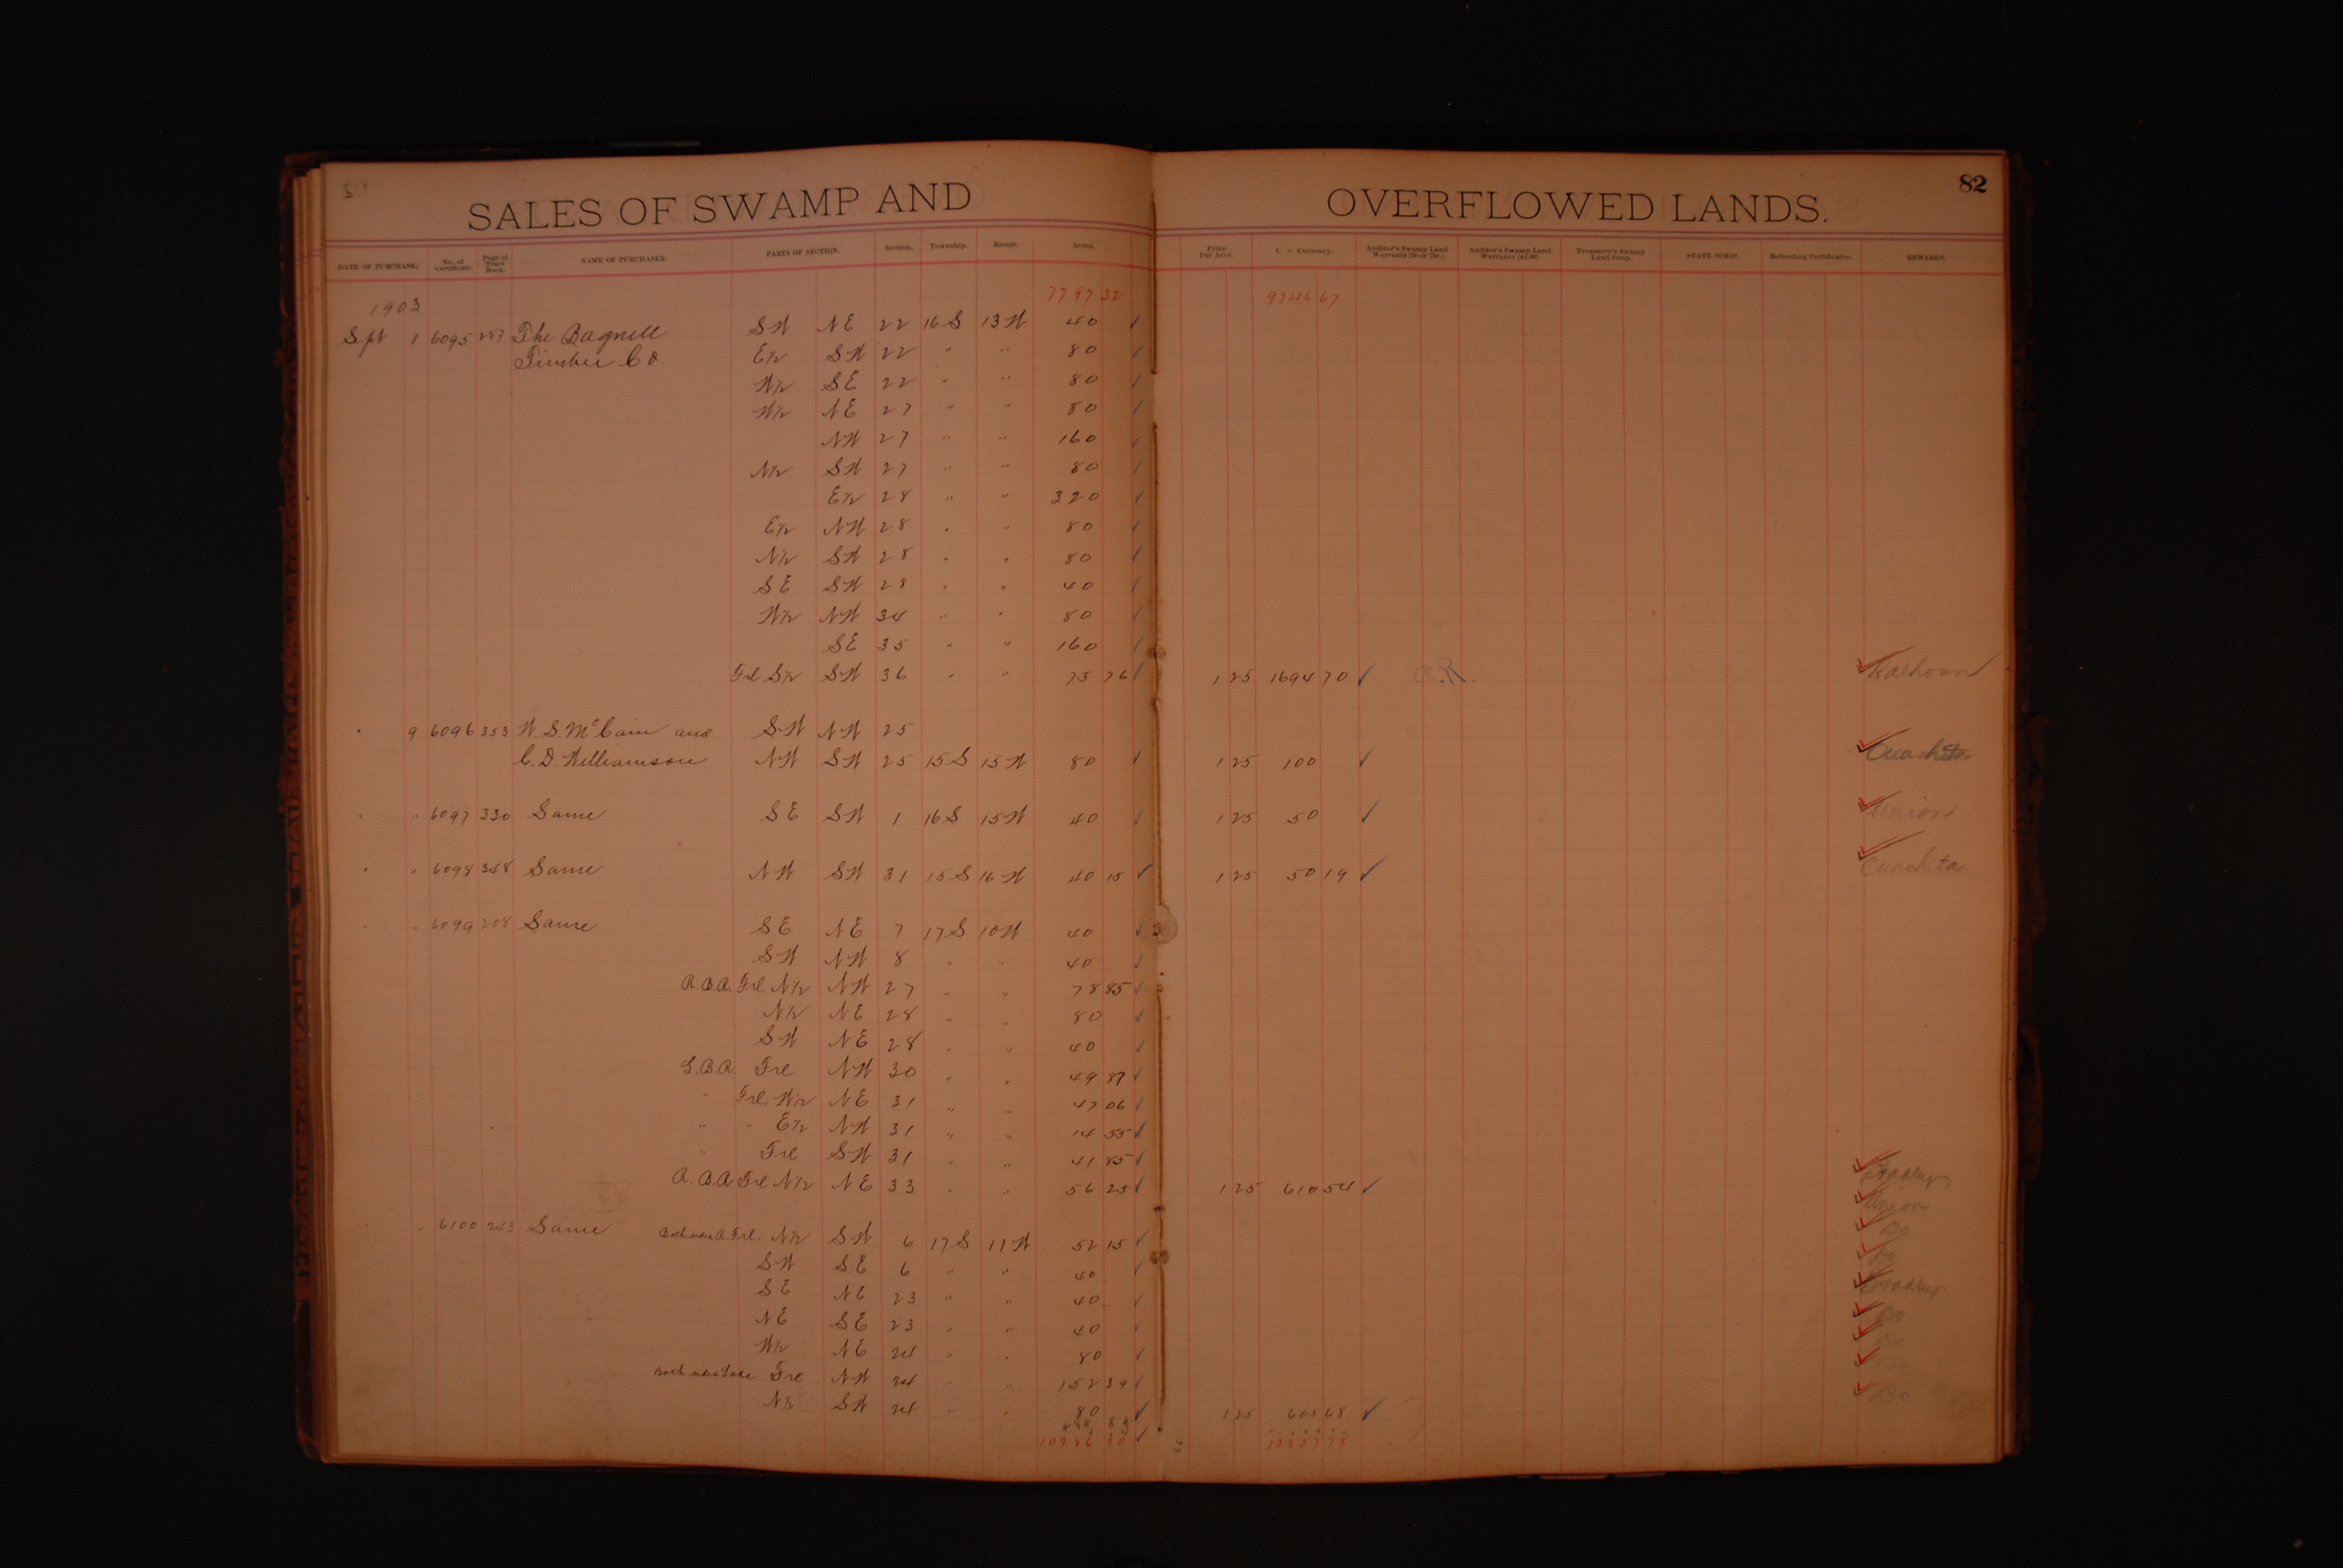 SALES OF SWAMP AND OVERFLOWED LANDS. 82
DATE OF PURCHASE. No. of Certificate. Page of Tract Book. NAME OF PURCHASER. PARTS OF SECTION. Section. Township. Range. Acres. Price Per Acre. U. S. Currency. Auditor's Swamp Land Warrants (50 or 75c.) Auditor's Swamp Land Warrants ($1.00) Treasurer's Swamp Land Scrip. STATE SCRIP. Refunding Certificates. REMARKS.
1903 7797 32 9746 67
Spt 1 6095 287 The Bagnell SW NE 22 16 S 13 W 40 ✓
Timber Co. E½ SW 22 " " 80 ✓
W½ SE 22 " " 80 ✓
W½ NE 27 " " 80 ✓
NW 27 " " 160 ✓
N½ SW 27 " " 80 ✓
E½ 28 " " 320 ✓
E½ NW 28 " " 80 ✓
N½ SW 28 " " 80 ✓
SE SW 28 " " 40 ✓
W½ NW 34 " " 80 ✓
SE 35 " " 160 ✓
Frl S½ SW 36 " " 75 76 ✓ 1 25 1694 70 ✓ Calhoun
" 9 6096 353 W. S. McCain and SW NW 25
C. D. Williamson NW SW 25 15 S 15 W 80 ✓ 1 25 100 ✓ Ouachita
" " 6097 330 Same SE SW 1 16 S 15 W 40 ✓ 1 25 50 ✓ Union
" " 6098 368 Same NW SW 31 15 S 16 W 40 15 ✓ 1 25 50 19 ✓ Ouachita
" " 6099 208 Same SE NE 7 17 S 10 W 40 ✓
SW NW 8 " " 40 ✓
Frl N½ NW 27 " " 78 85 ✓
N½ NE 28 " " 80 ✓
SW NE 28 " " 40 ✓
Frl NW 30 " " 49 87 ✓
" Frl. W½ NE 31 " " 47 06 ✓
" " E½ NW 31 " " 14 55 ✓
" Frl SW 31 " " 41 85 ✓
Frl N½ NE 33 " " 56 25 ✓ 1 25 610 54 ✓ Bradley
Union
" " 6100 243 Same Both sides Frl. N½ SW 6 17 S 11 W 52 15 ✓ Do
SW SE 6 " " 40 ✓ Do
SE NE 23 " " 40 ✓ Bradley
NE SE 23 " " 40 ✓ Do
W½ NE 24 " " 80 ✓ Do
Both sides Lake Frl NW 24 " " 152 39 ✓
N½ SW 24 " " 80 ✓ 1 25 605 68 ✓ Do
10286 20 ✓ 12857 78